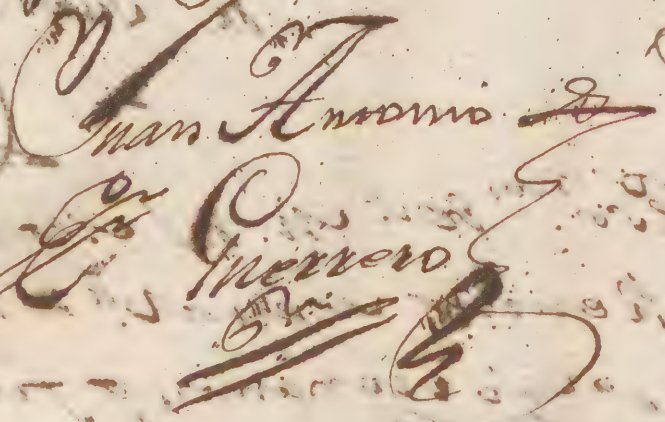 Juan Antonio
Guerrero